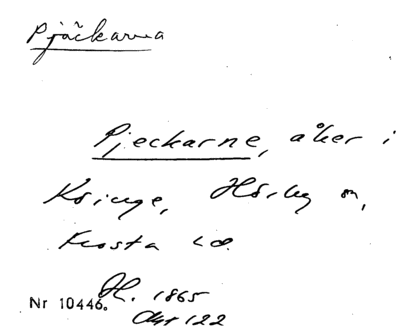 Pjäckarna
Pjeckarne, åker i
Köinge, Hörby sn,
Frosta hd.
H. 1865
Nr 10446. Akt 122